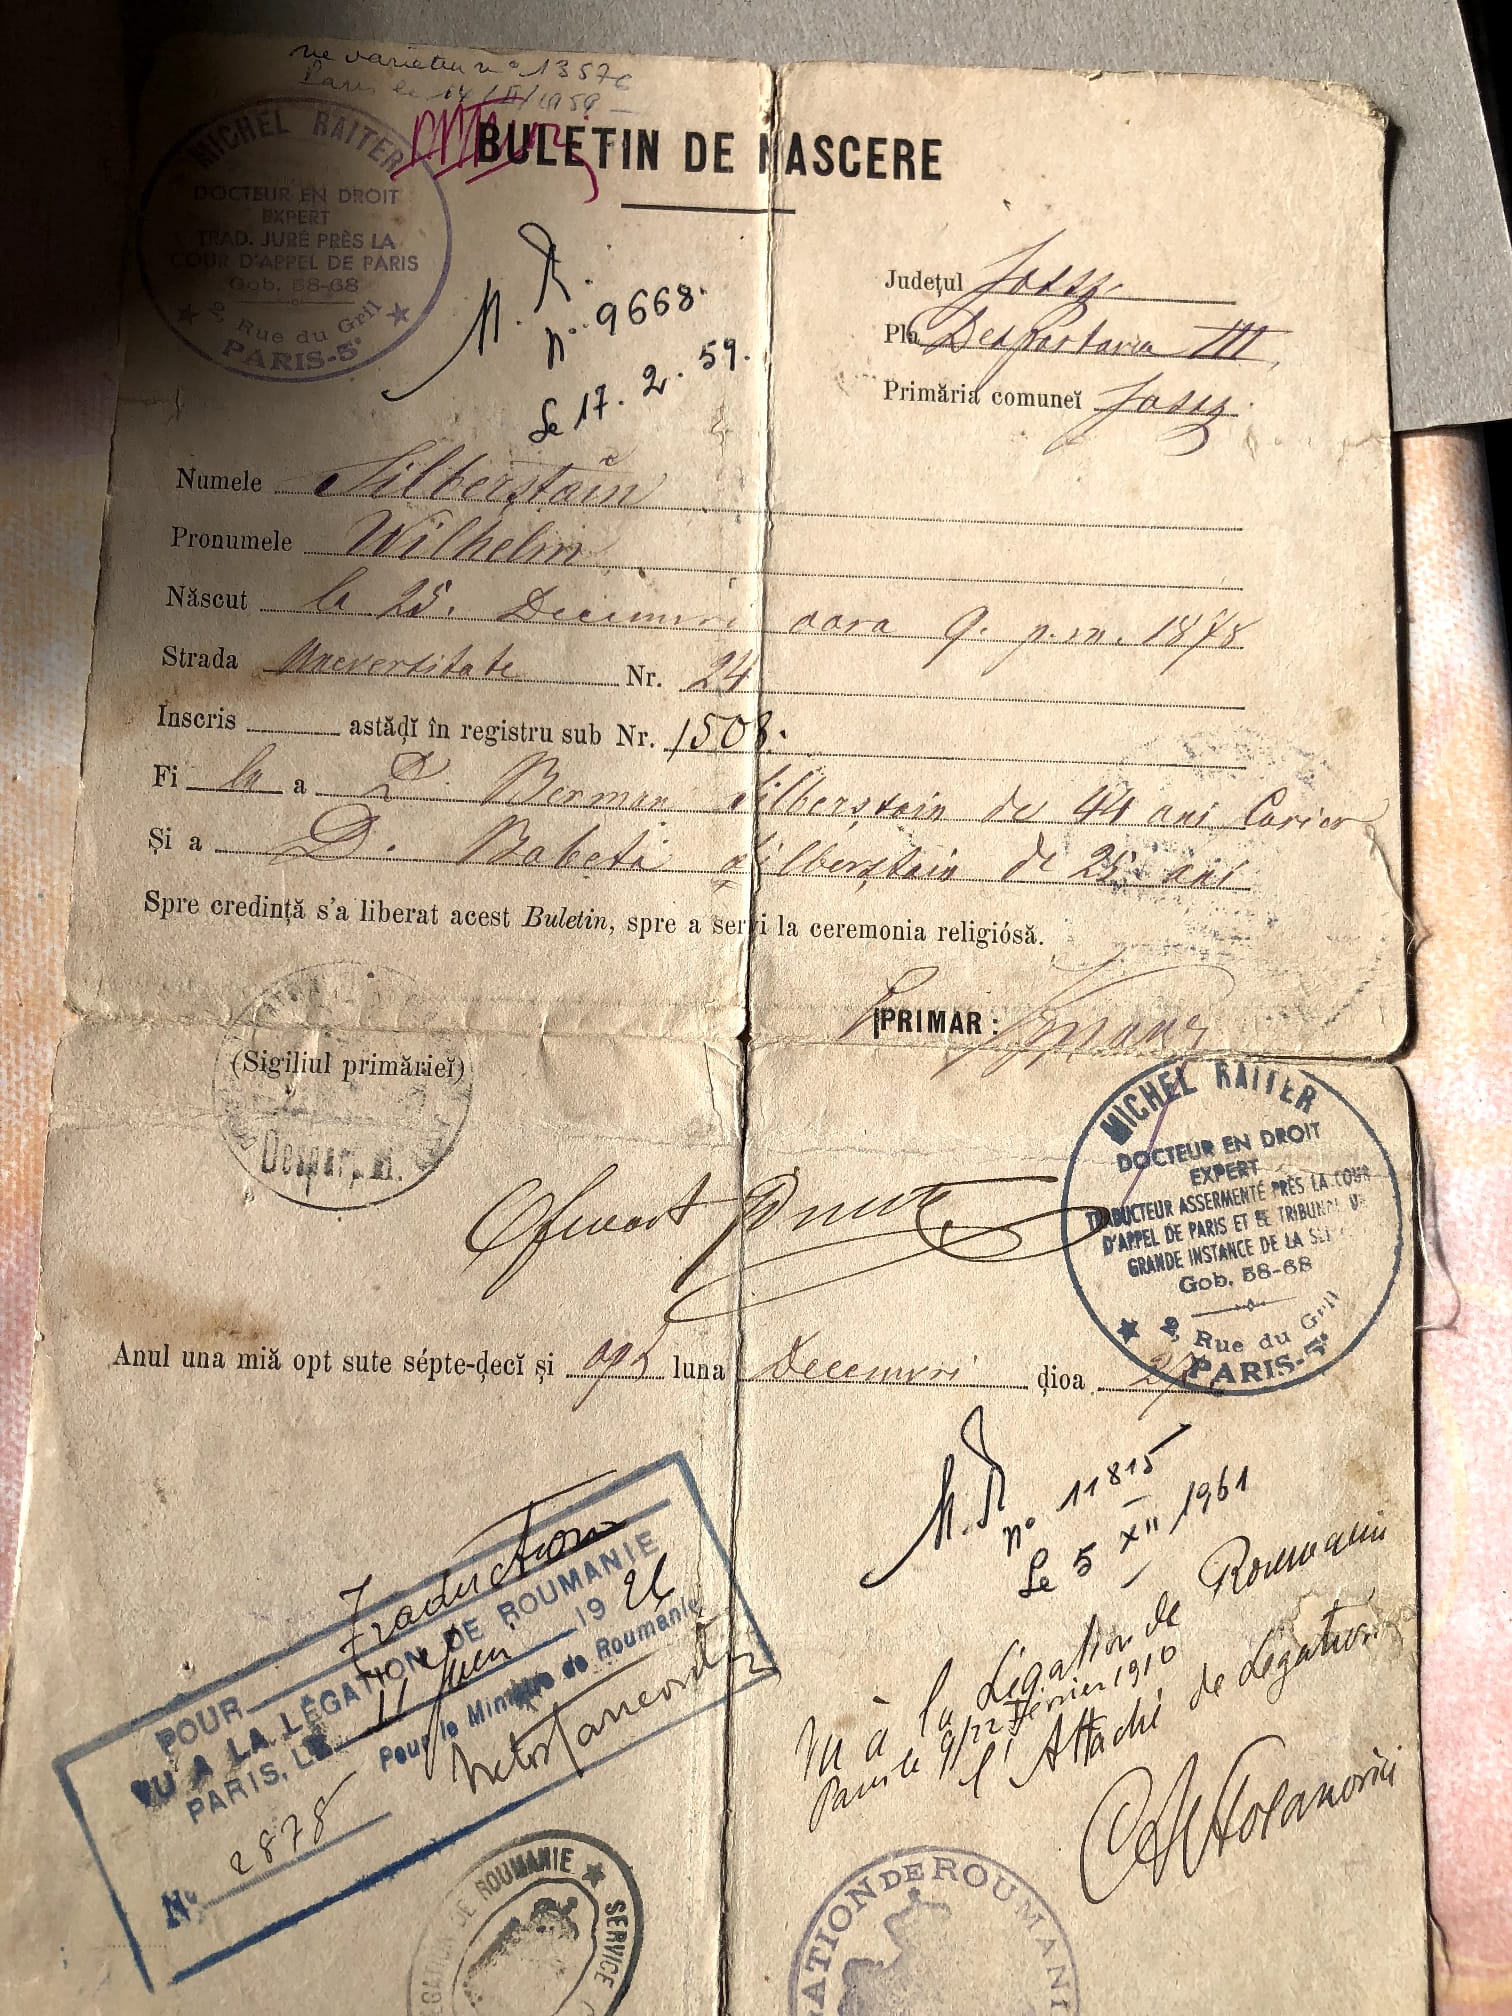 ne varietur nº 13576
Paris le 14/II/1959
MICHEL RAITER
DOCTEUR EN DROIT
EXPERT
TRAD. JURÉ PRÈS LA
COUR D'APPEL DE PARIS
Gob. 58-68
2, Rue du Gril
PARIS-5e
BULETIN DE NASCERE
M. R.
nº 9668.
Le 17. 2. 59.
Județul Jassy
Pla Despartaria III
Primăria comuneĭ Jassy.
Numele Silberștain
Pronumele Wilhelm
Născut la 25. Decemvri oara 9. p.m. 1878
Strada Universitate Nr. 24
Inscris astăḑĭ în registru sub Nr. 1508.
Fi lu a D. Berman Silberștain de 44 ani
Și a D. Babeta Silberștain de 25 ani
Spre credință s'a liberat acest Buletin, spre a servi la ceremonia religiósă.
PRIMAR:
(Sigiliul primărieĭ)
Despar.
MICHEL RAITER
DOCTEUR EN DROIT
EXPERT
TRADUCTEUR ASSERMENTÉ PRÈS LA COUR
D'APPEL DE PARIS ET LE TRIBUNAL
GRANDE INSTANCE DE LA
Gob. 58-68
2, Rue du Gril
PARIS-5e
Anul una miă opt sute sépte-ḑecĭ și opt luna Decemvri ḑioa 27
M. R.
nº 11815
Le 5 XII 1961
POUR Traduction
VU A LA LÉGATION DE ROUMANIE
PARIS, LE 11 Juin 19 26
Pour le Ministre de Roumanie
Nº 2878
Vu à la Légation de Roumanie
Paris le 9/22 Février 1910
l'Attaché de Légation
LÉGATION DE ROUMANIE ★ SERVICE
LÉGATION DE ROUMANIE